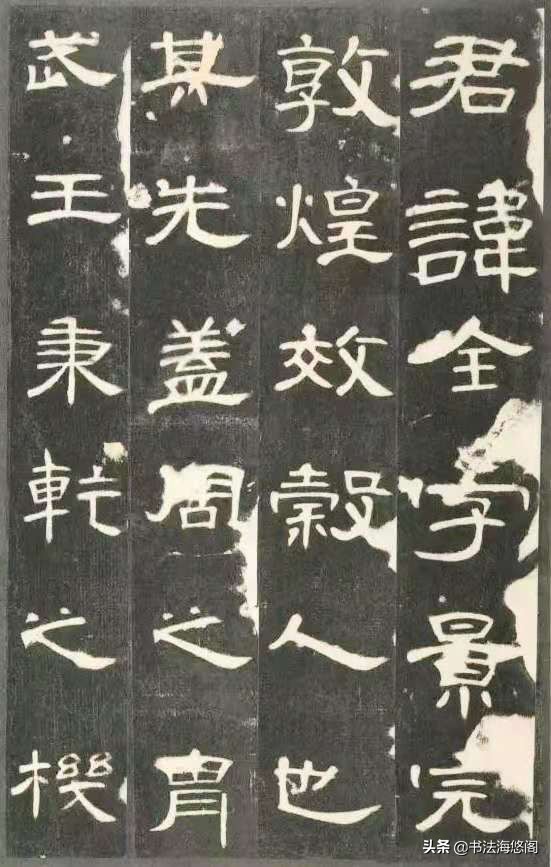 君諱全字景完
敦煌效穀人也
其先蓋周之胄
武王秉乾之機
头条 @书法海悠阁